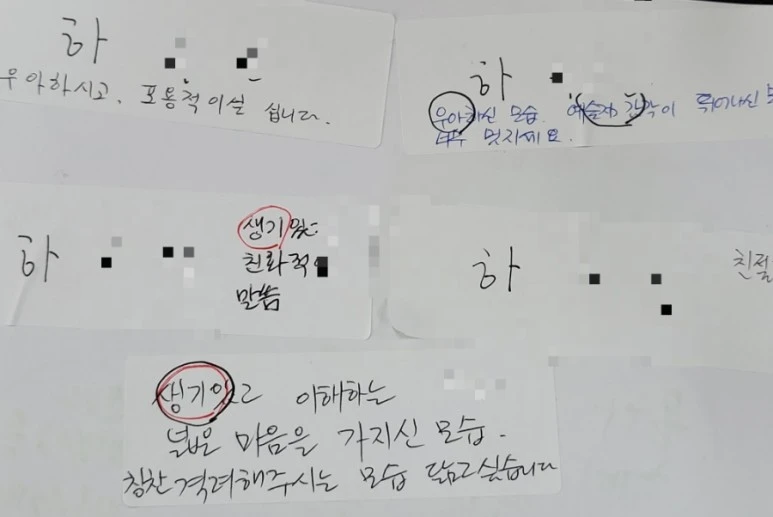 하
우아하시고, 포용적이실 십니다.
하
우아하신 모습. 예술자 감각이 뛰어나신
멋지세요.
하
생기있는
친화적
말씀
하
친절
생기있고 이해하는
넓은 마음을 가지신 모습.
칭찬격려해주시는 모습 닮고싶습니다